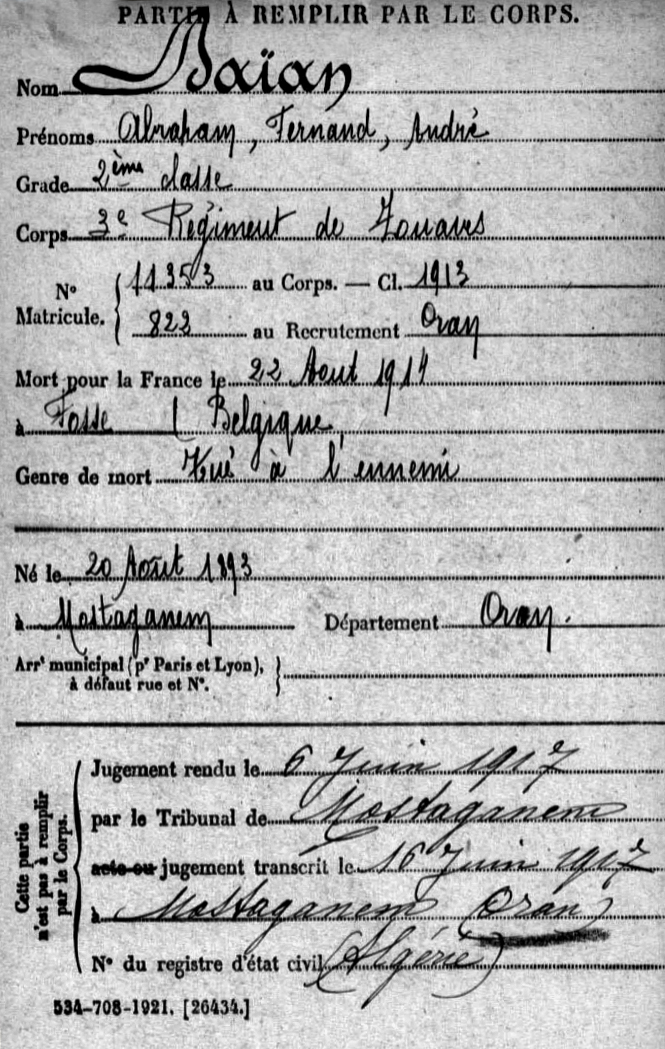 PARTIE À REMPLIR PAR LE CORPS.
Nom Daïan
Prénoms Abraham, Fernand, André
Grade 2ème classe
Corps 3e Régiment de Zouaves
No Matricule. { 11353 au Corps. — Cl. 1913
822 au Recrutement Oran
Mort pour la France le 22 Aout 1914
à Fosse ( Belgique
Genre de mort Tué à l'ennemi
Né le 20 Août 1893
à Mostaganem Département Oran.
Arrt municipal (pr Paris et Lyon),
à défaut rue et No. }
Cette partie
n'est pas à remplir
par le Corps.
Jugement rendu le 6 Juin 1917
par le Tribunal de Mostaganem
acte ou jugement transcrit le 16 Juin 1917
à Mostaganem (Oran)
No du registre d'état civil (Algérie)
534-708-1921. [26434.]